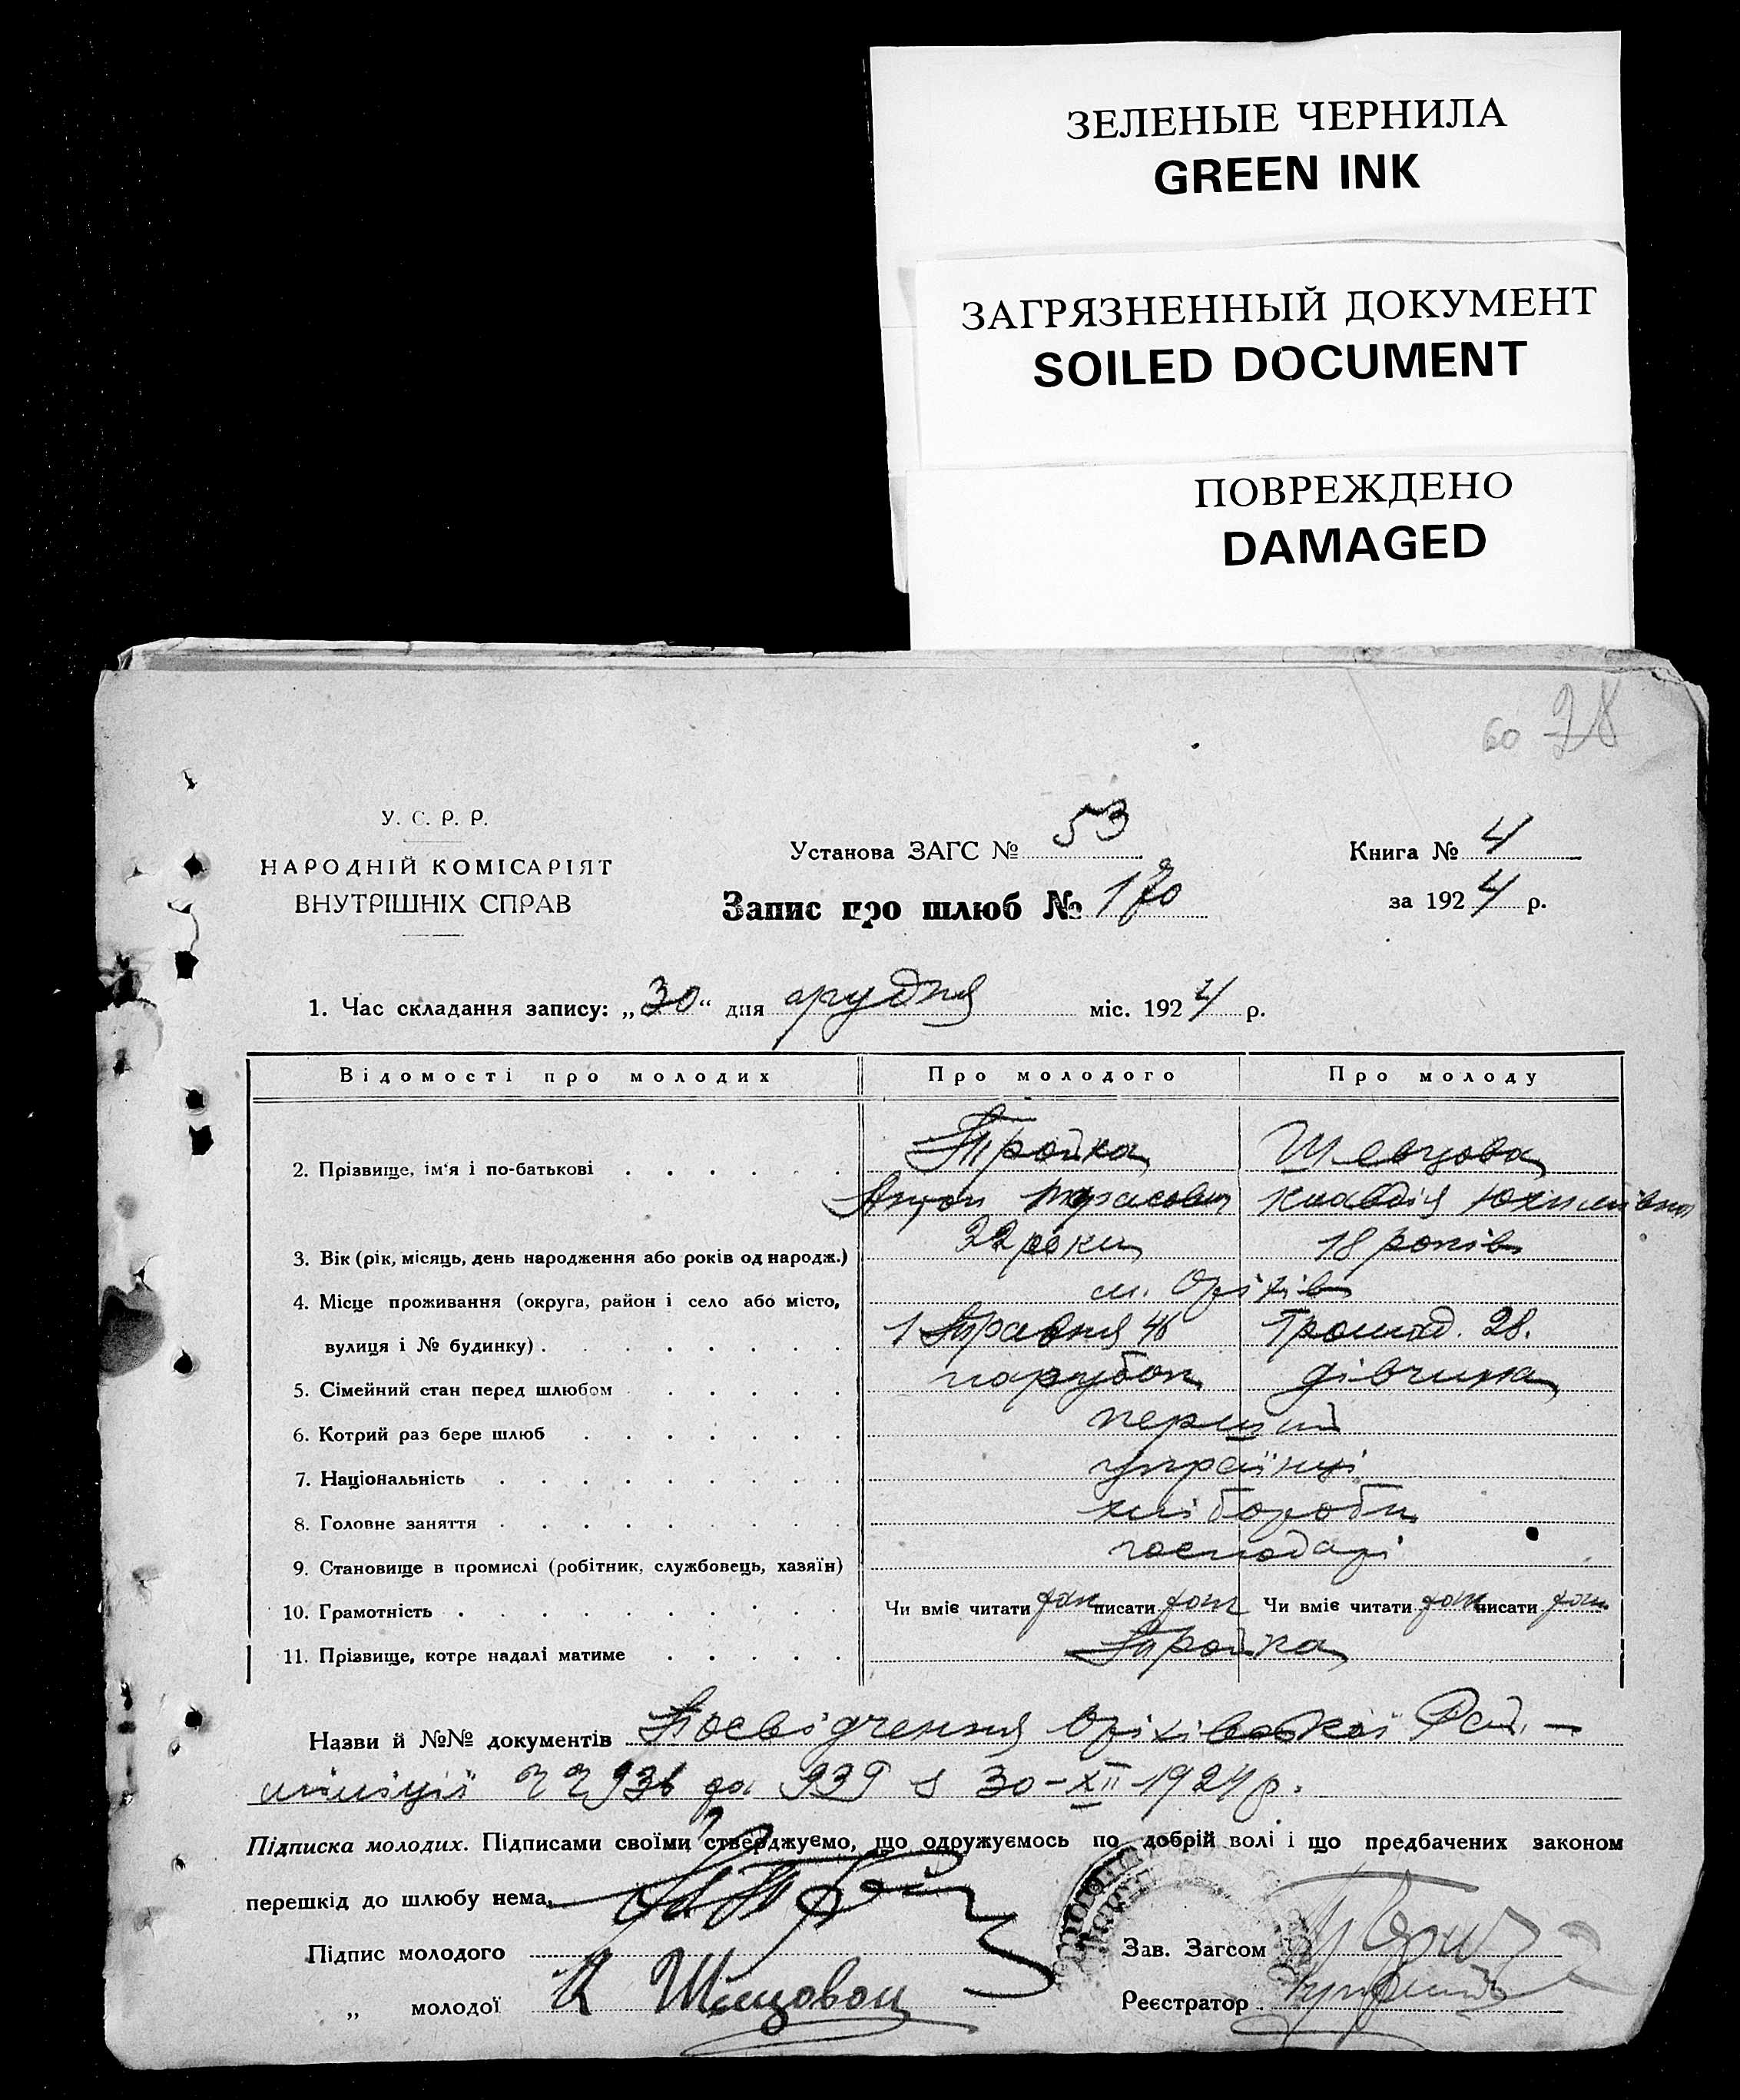 ЗЕЛЕНЫЕ ЧЕРНИЛА
GREEN INK
ЗАГРЯЗНЕННЫЙ ДОКУМЕНТ
SOILED DOCUMENT
ПОВРЕЖДЕНО
DAMAGED
60 28
У. С. Р. Р.
НАРОДНІЙ КОМІСАРІЯТ
ВНУТРІШНІХ СПРАВ
Установа ЗАГС № 53
Запис про шлюб № 170
Книга № 4
за 1924 р.
1. Час складання запису: „30“ дня грудня міс. 1924 р.
Відомості про молодих Про молодого Про молоду
2. Прізвище, ім'я і по-батькові Тройка Шевцова
Антон Тарасович Клавдія Юхимівна
3. Вік (рік, місяць, день народження або років од народж.) 22 роки 18 років
4. Місце проживання (округа, район і село або місто, м. Оріхів
вулиця і № будинку) 1 Травня 46 Громад. 28.
5. Сімейний стан перед шлюбом парубок дівчина
6. Котрий раз бере шлюб перший
7. Національність українці
8. Головне заняття хлібороби
9. Становище в промислі (робітник, службовець, хазяїн) господарі
10. Грамотність Чи вміє читати так писати так Чи вміє читати так писати так
11. Прізвище, котре надалі матиме Тройка
Назви й №№ документів Посвідчення Оріхівської Рай.
міліції 938 до 939 з 30-XII-1924 р.
Підписка молодих. Підписами своїми стверджуємо, що одружуємось по добрій волі і що предбачених законом
перешкід до шлюбу нема.
Підпис молодого
„ молодої К Шевцовой
Зав. Загсом
Реєстратор